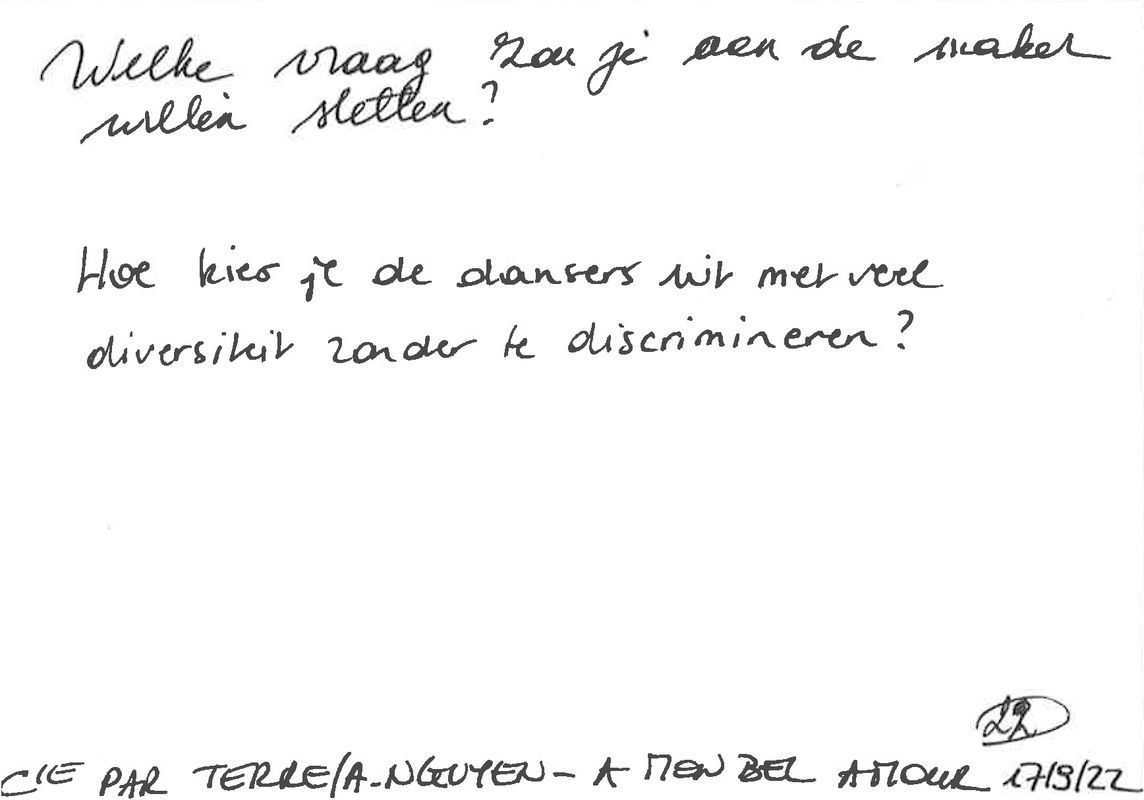 Welke vraag zou je aan de maker
willen stellen?
Hoe kies je de dansers uit met veel
diversiteit zonder te discrimineren?
22
CIE PAR TERRE/A.NGUYEN - A MON BEL AMOUR 17/9/22